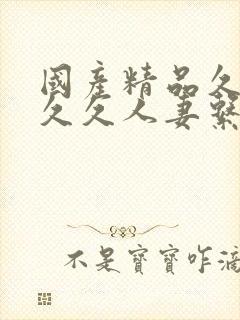 國產精品久
久久人妻繫
不是寶寶咋滴